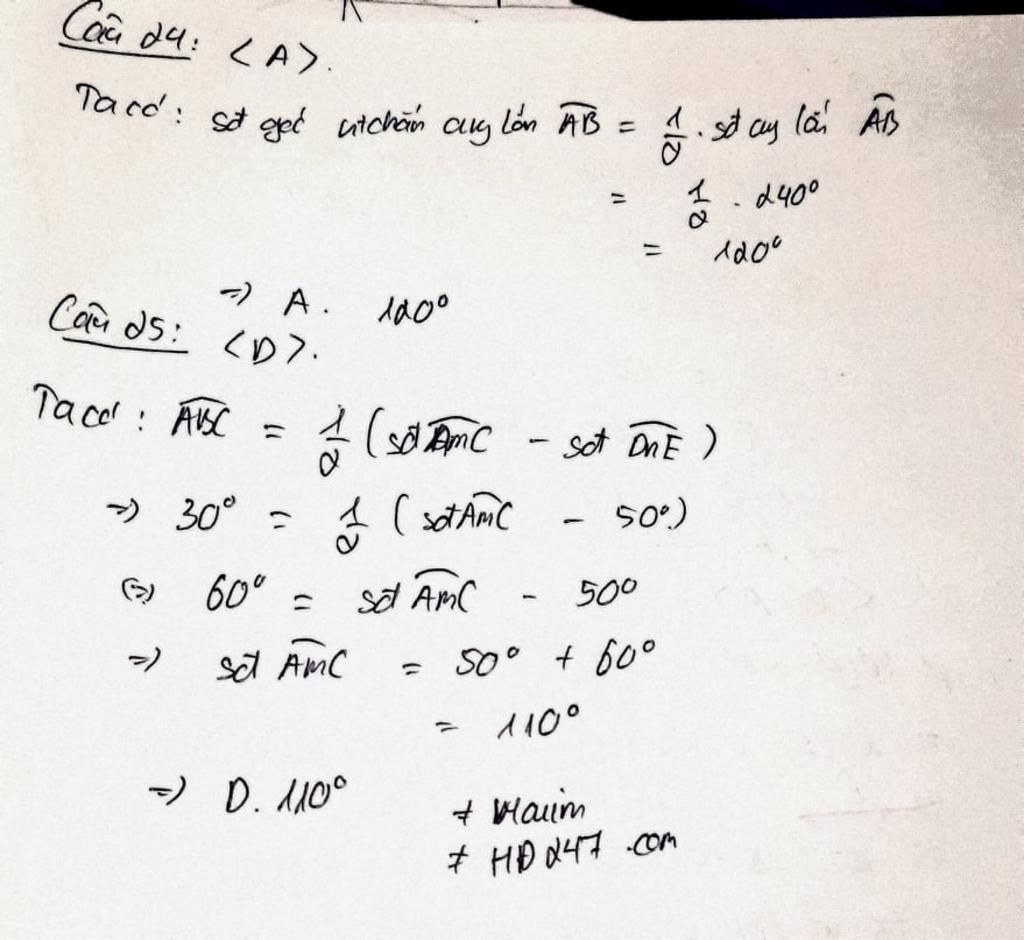 Câu 24: <A>.
Ta có: sđ góc nt chắn cung lớn AB = 1/2 . sđ cung lớn AB
= 1/2 . 240°
= 120°
=> A. 120°
Câu 25: <D>.
Ta có: ABC = 1/2 (sđ AmC - sđ DnE)
=> 30° = 1/2 (sđ AmC - 50°)
<=> 60° = sđ AmC - 50°
=> sđ AmC = 50° + 60°
= 110°
=> D. 110°
HĐ247.com